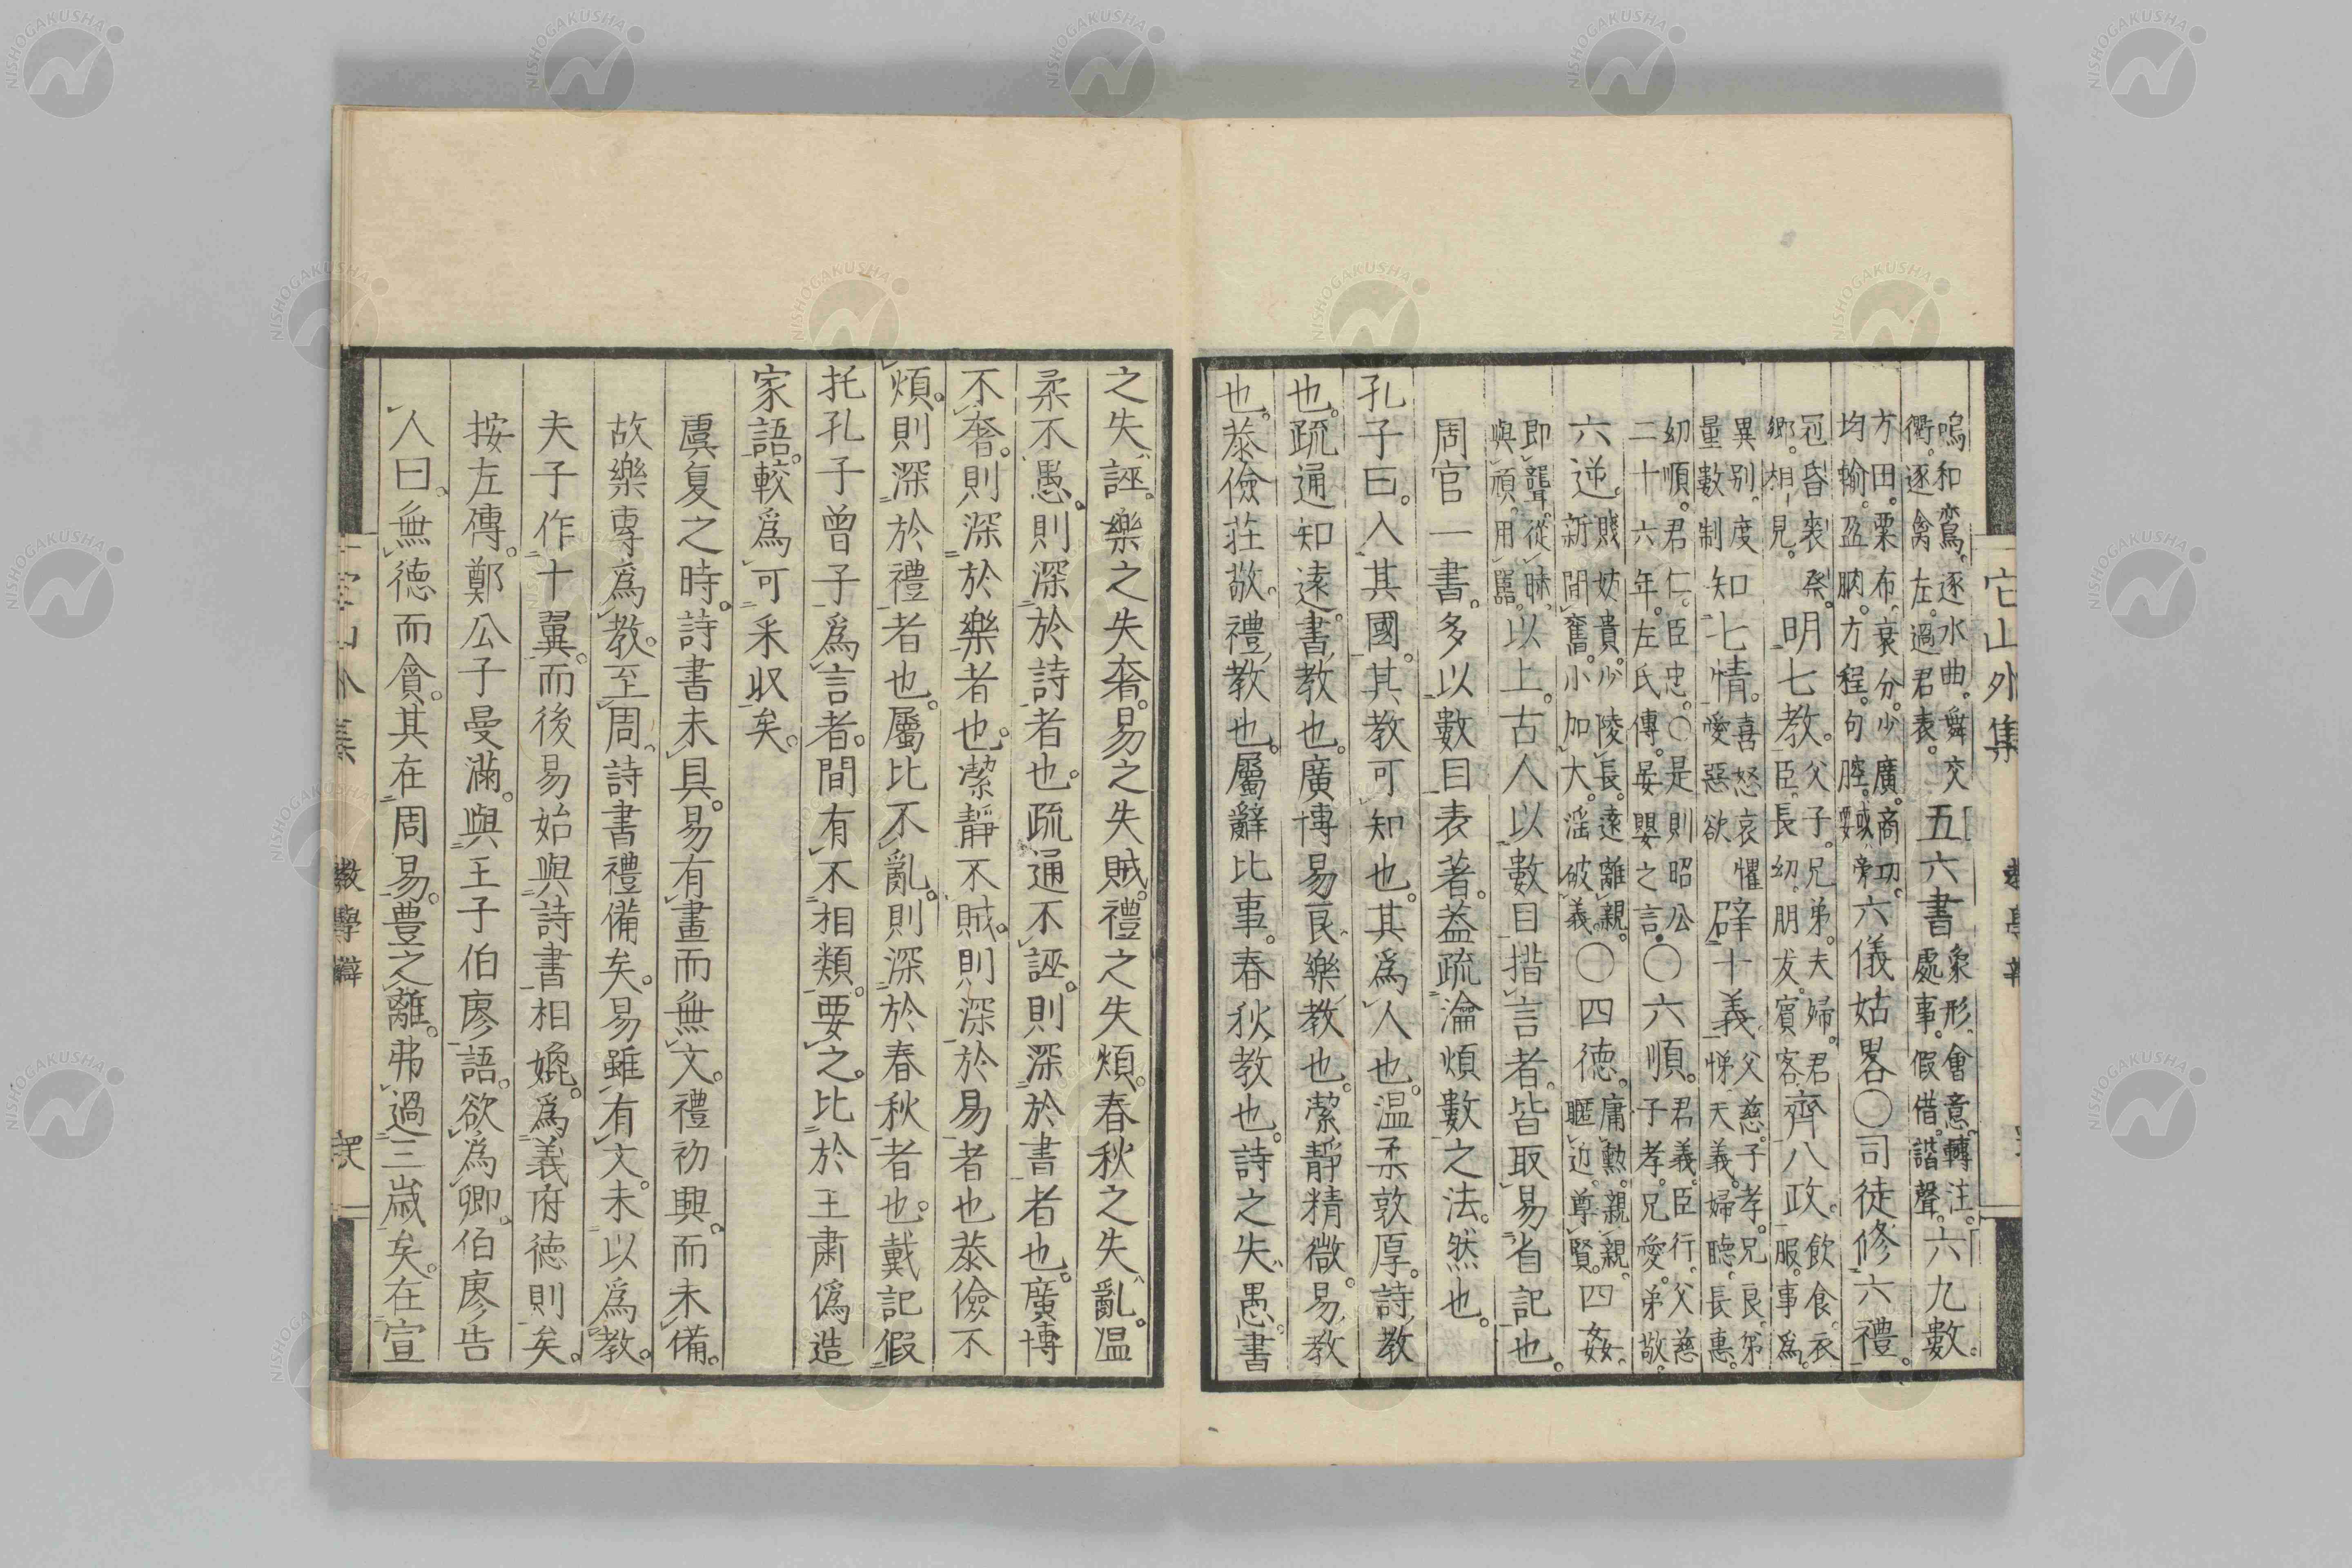 它山外集
鳴和鸞。逐水曲。舞交衢。逐禽左。過君表。五六書象形、會意、轉注。處事。假借。諧聲。六九數。
方田。粟布、衰分。少廣。商功。均輸。盈朒。方程。句腔。重差旁要六儀姑畧〇司徒修六禮。
冠昏喪祭。鄉。相見。明七教。父子。兄弟。夫婦。君臣。長幼。朋友。賓客齊八政。飲食。衣服。事爲。
異別。度量數制知七情。喜怒哀懼愛惡欲辟十義父慈。子孝。兄良。弟悌、夫義。婦聽、長惠。
幼順。君仁。臣忠。〇是則昭公二十六年。左氏傳。晏嬰之言。〇六順。君義。臣行、父慈子孝。兄愛。弟敬。
六逆。賤妨貴。少陵長。遠離親。新間舊。小加大。淫破義。〇四德。庸勲。親親。暱近。尊賢。四姦。
即聾。從昧、與頑。用嚚。以上。古人以數目揩言者。皆取易省記也。
周官一書。多以數目表著。蓋疏瀹煩數之法。然也。
孔子曰。入其國。其教可知也。其爲人也。温柔敦厚。詩教
也。疏通知遠。書教也。廣博易良、樂教也。潔靜精微。易教
也。恭儉莊敬。禮教也。屬辭比事。春秋教也。詩之失、愚。書
之失、誣。樂之失奢。易之失賊。禮之失煩。春秋之失、亂。温
柔不愚。則深於詩者也。疏通不誣。則深於書者也。廣博
不奢。則深於樂者也。潔靜不賊。則深於易者也恭儉不
煩。則深於禮者也。屬比不亂。則深於春秋者也。戴記假
托孔子曾子爲言者。間有不相類。要之。比於王肅僞造
家語。較爲可采収矣。
虞夏之時。詩書未具。易有畫而無文。禮初興。而未備。
故樂專爲教。至周。詩書禮備矣。易雖有文。未以爲教。
夫子作十翼。而後易始與詩書相媲。爲義府德則矣。
按左傳。鄭公子曼滿。與王子伯廖語。欲爲卿。伯廖告
人曰。無德而貪。其在周易。豊之離。弗過三歲矣。在宣
教學辯